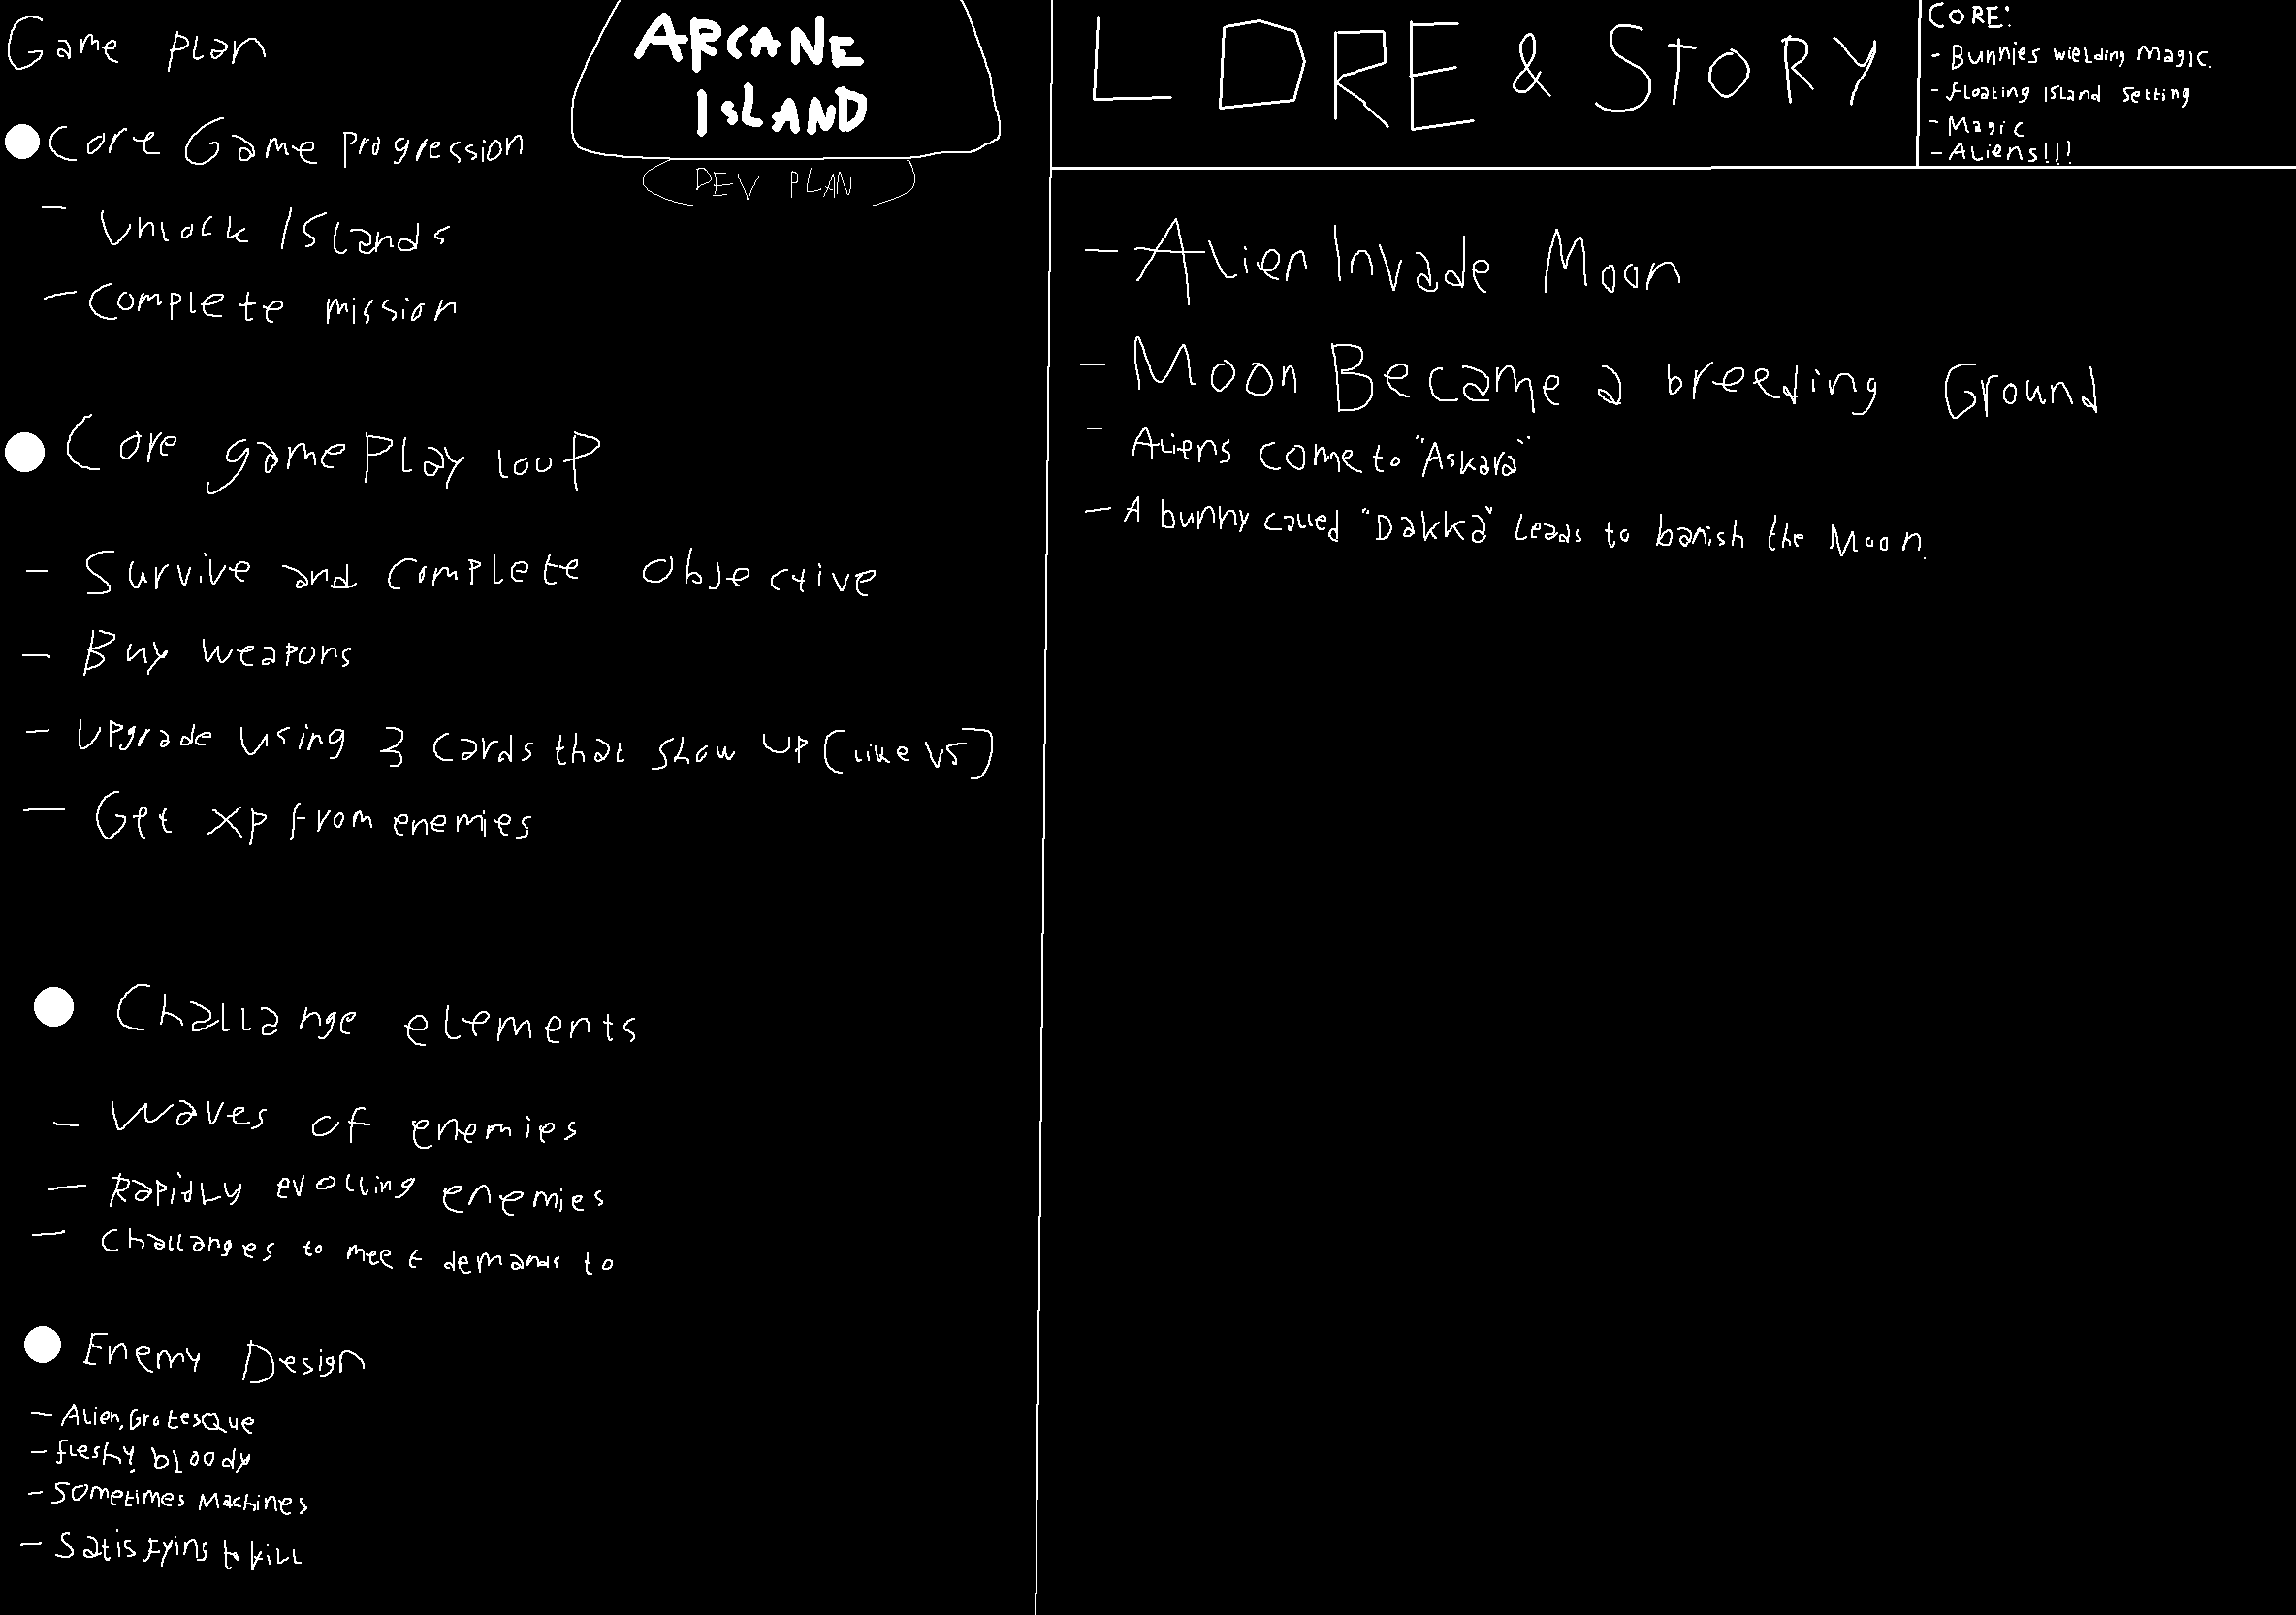 Game Plan
ARCANE
ISLAND
DEV PLAN
Core Game progression
- Unlock Islands
- Complete mission
Core gameplay loop
- Survive and complete objective
- Buy weapons
- Upgrade using 3 cards that show up (like VS)
- Get XP from enemies
Challange elements
- Waves of enemies
- Rapidly evolling enemies
- Challanges to meet demands to
Enemy Design
- Alien, Grotesque
- fleshy! bloody
- Sometimes Machines
- Satisfying to kill
LORE & STORY
CORE:
- Bunnies wielding Magic.
- Floating Island Setting
- Magic
- Aliens!!!
- Alien Invade Moon
- Moon Became a breeding Ground
- Aliens come to "Askara"
- A bunny called "Dakka" leads to banish the Moon.